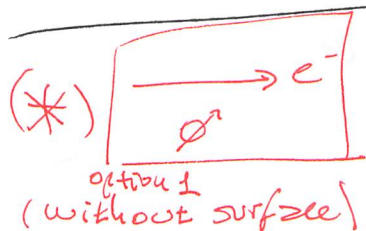 (*) e⁻
ø
option 1
(without surface)